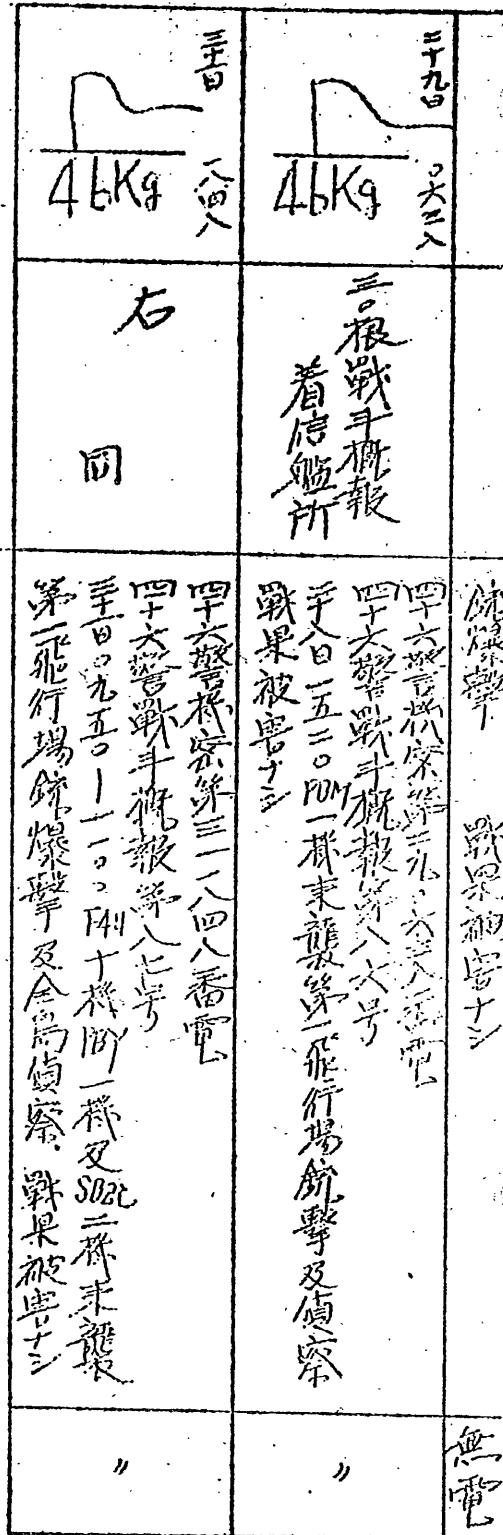 銃爆撃　戦果被害ナシ
無電
二十九日　〇六三八
46Kg
三〇根戦斗概報
着信艦所
四十六警機密第二九〇六三八番電
四十六警戦斗概報第八六号
二十八日一五二〇FOM一機来襲第一飛行場銃撃及偵察
戦果被害ナシ
〃
三十一日　一八四八
46Kg
右同
四十六警機密第三一一八四八番電
四十六警戦斗概報第八七号
三十一日〇九五〇—一一〇〇F4U十機 一機及SB2C二機来襲
第一飛行場銃爆撃及全島偵察、戦果被害ナシ
〃